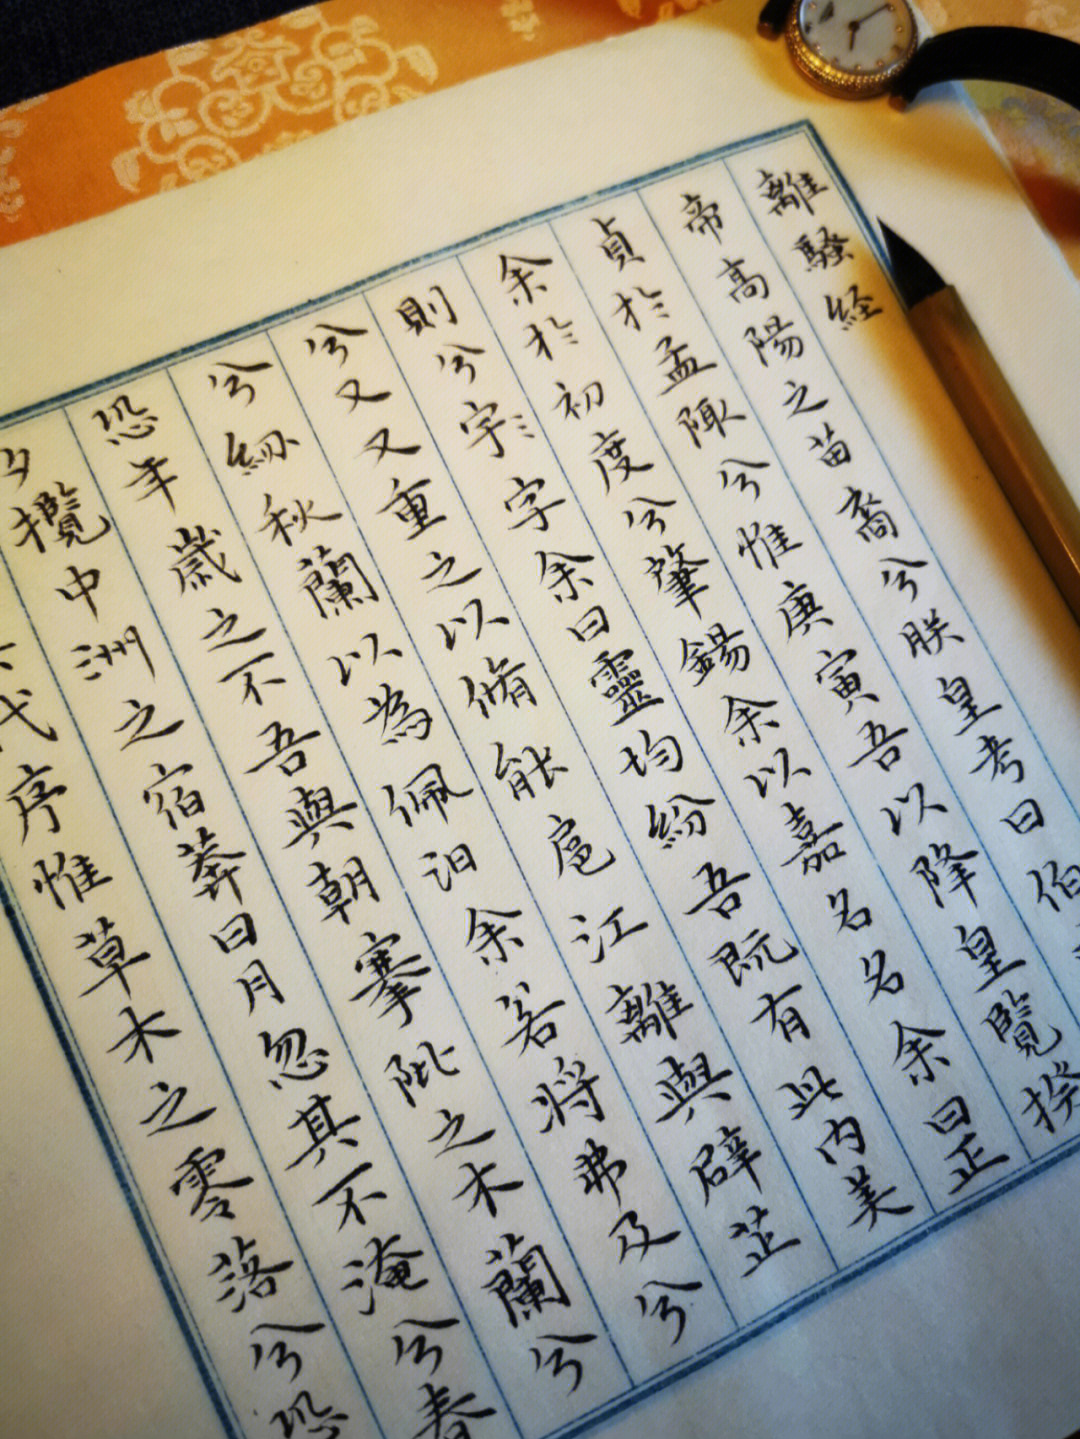 離騷経
帝高陽之苗裔兮朕皇考曰伯
貞於孟陬兮惟庚寅吾以降皇覽揆
余於初度兮肇錫余以嘉名名余曰正
則兮宇〻字余曰靈均紛吾既有此内美
兮又又重之以脩能扈江離與辟芷
兮紉秋蘭以為佩汩余若将弗及兮
恐年歳之不吾與朝搴阰之木蘭兮
夕攬中洲之宿莽日月忽其不淹兮春
代序惟草木之零落兮恐